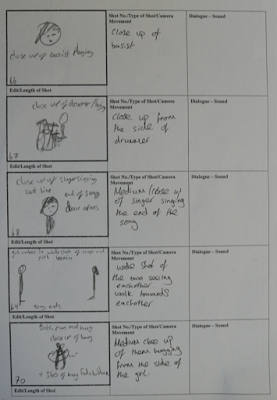 close up of basist playing
66
Edit/Length of Shot
Shot No./Type of Shot/Camera
Movement
Close up of
basist
Dialogue - Sound
close up of drummer
67
Edit/Length of Shot
Shot No./Type of Shot/Camera
Movement
Close up from
the side of
drummer
Dialogue - Sound
close up of singer singing
last line
end of song
door opens
68
Edit/Length of Shot
Shot No./Type of Shot/Camera
Movement
Medium/close up
of singer singing
the end of the
song
Dialogue - Sound
69
song ends
Edit/Length of Shot
Shot No./Type of Shot/Camera
Movement
wide shot of
the two seeing
eachother
walk towards
eachother
Dialogue - Sound
Both run and hug
close up of hug
70
Edit/Length of Shot
Shot No./Type of Shot/Camera
Movement
Medium close up
of them hugging
from the side of
the girl.
Dialogue - Sound